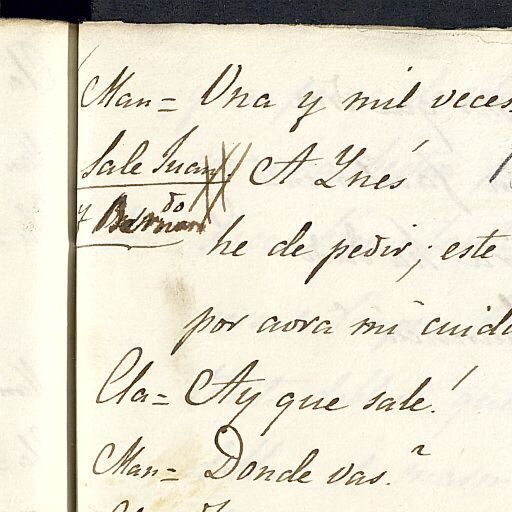 Man= Una y mil veces
Sale Juan
y Bernardo
A Ynés
he de pedir; este
por aora mi cuida
Cla= Ay que sale!
Man= Donde vas?